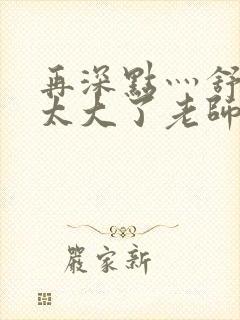 再深點灬舒
太大了老師
嚴家新